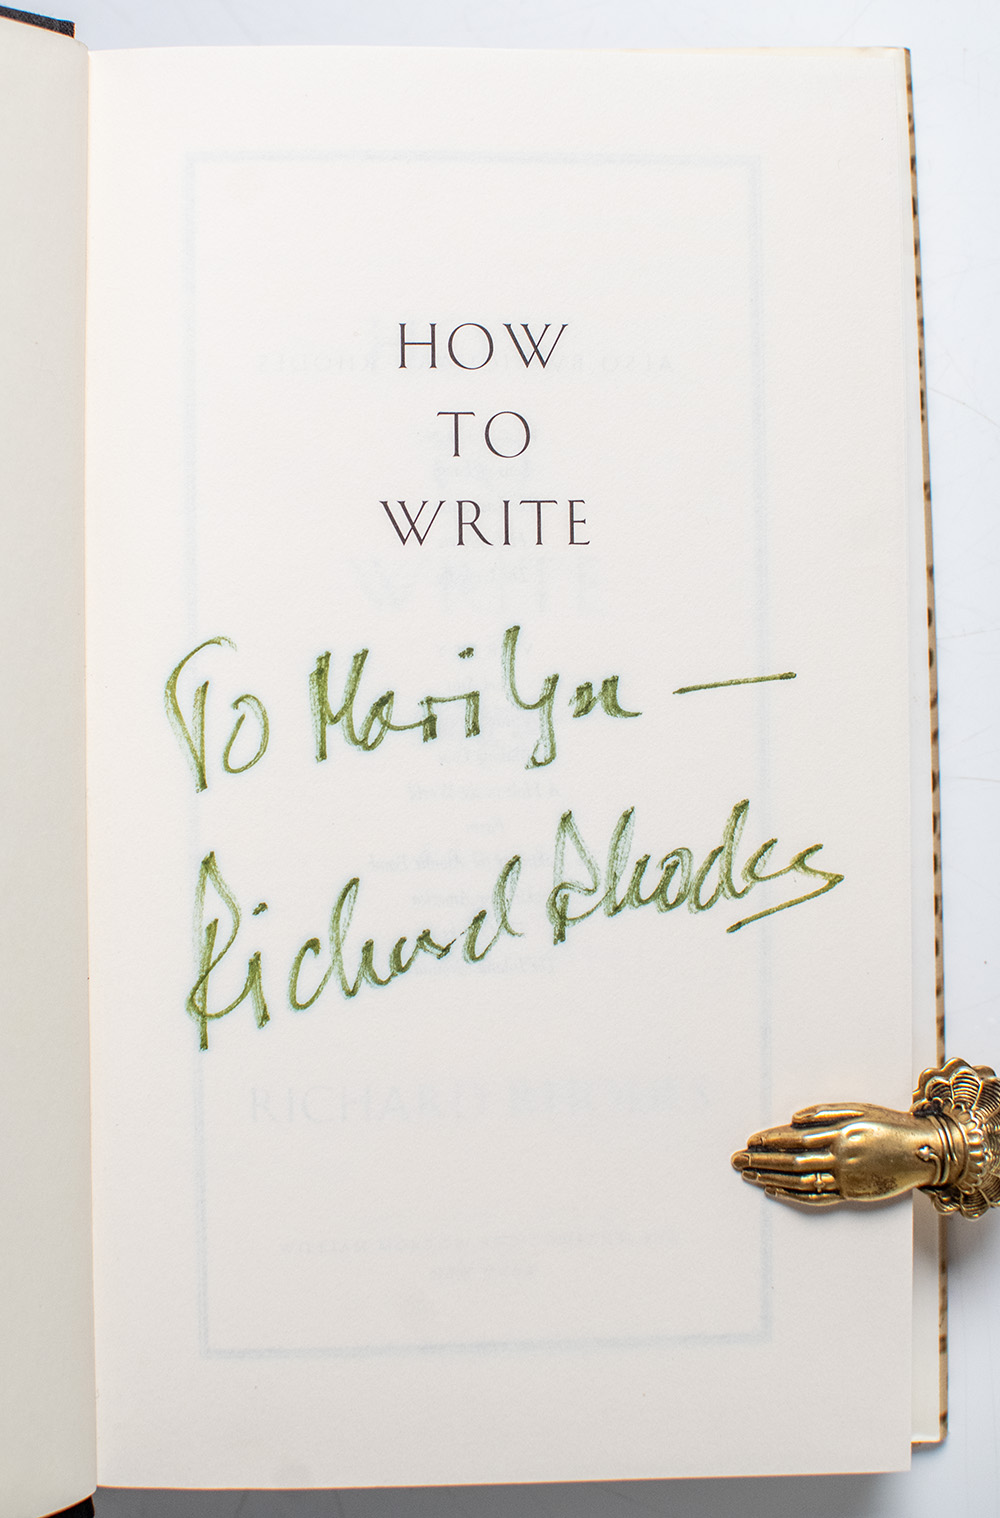 HOW
TO
WRITE
To Marilyn —
Richard Rhodes